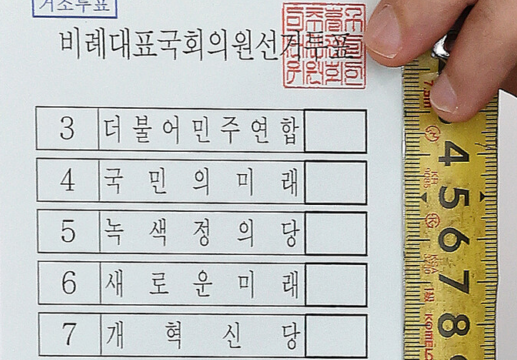 거소투표
비례대표국회의원선거투표
3 더불어민주연합
4 국민의미래
5 녹색정의당
6 새로운미래
7 개혁신당
4 5 6 7 8